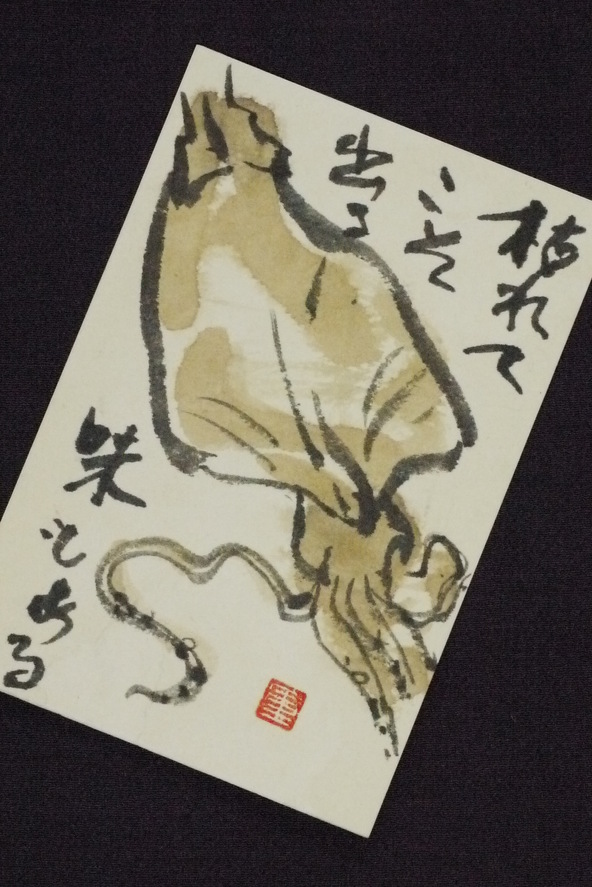 枯れて
こそ
出る
味もある